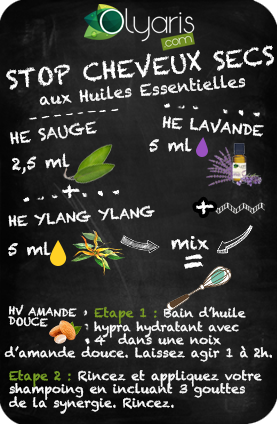 Olyaris
com
STOP CHEVEUX SECS
aux Huiles Essentielles
HE SAUGE
2,5 ml
HE LAVANDE
5 ml
+
+
HE YLANG YLANG
5 ml
mix
=
HV AMANDE
DOUCE
Etape 1 : Bain d'huile
hypra hydratant avec
4 dans une noix
d'amande douce. Laissez agir 1 à 2h.
Etape 2 : Rincez et appliquez votre
shampoing en incluant 3 gouttes
de la synergie. Rincez.